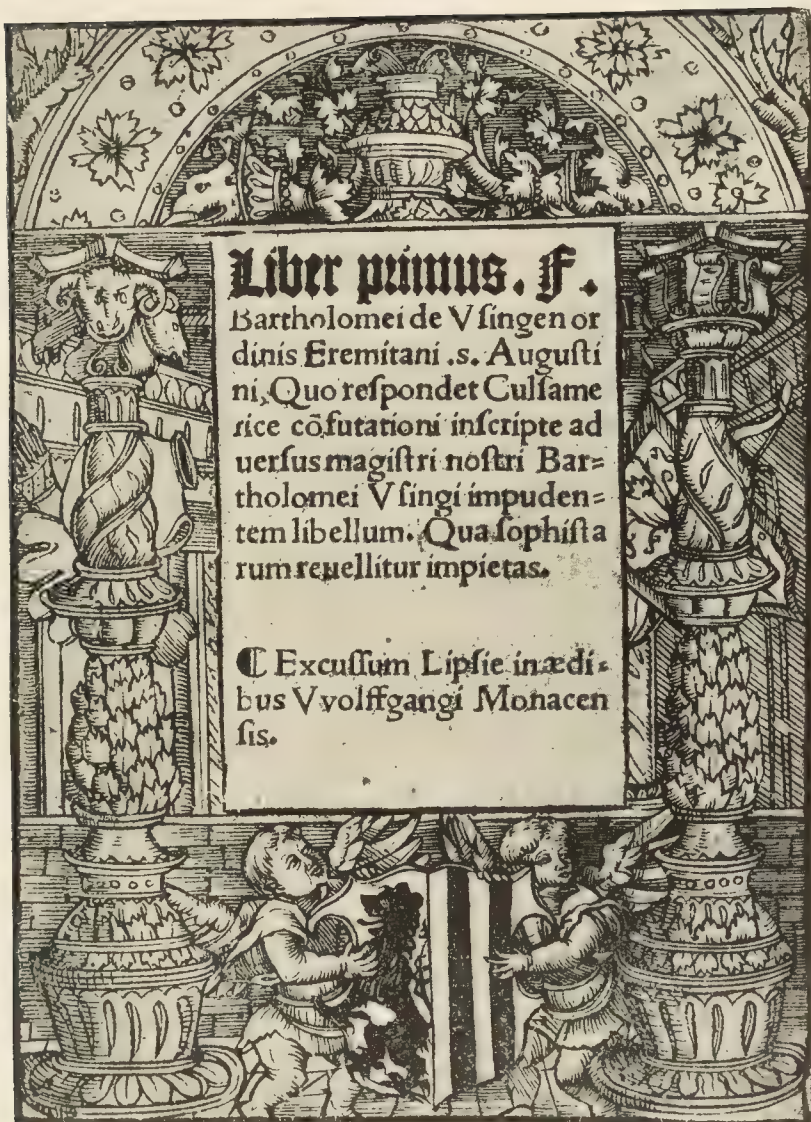 Liber primus. F.
Bartholomei de Vſingen or
dinis Eremitani .s. Auguſti
ni, Quo reſpondet Culſame
rice cōfutationi inſcripte ad
uerſus magiſtri noſtri Bar=
tholomei Vſingi impuden=
tem libellum. Qua ſophiſta
rum reuellitur impietas.
⸿ Excuſſum Lipſie in ædi=
bus Vvolffgangi Monacen
ſis.